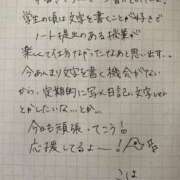 学生の頃は文字を書くことが好きで
ノート提出のある授業が
楽しくて仕方なかったなぁと思い出す..
今あんまり文字を書く機会がない
から、定期的に写メ日記で文字して
とかしたいな...とか...
今日も頑張ってこう!
応援してるよー!
こは